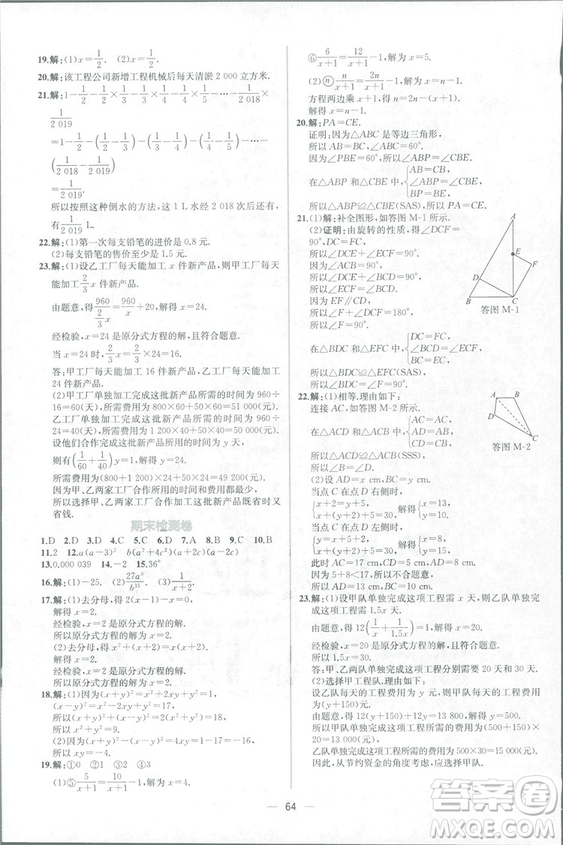 19.解:(1)x=1/2. (2)x=1/2.
20.解:该工程公司新增工程机械后每天清淤 2 000 立方米.
21.解:1-1/2-1/2×1/3-1/3×1/4-1/4×1/5-…-1/2 018×
1/2 019
=1-1/2-(1/2-1/3)-(1/3-1/4)-(1/4-1/5)-…-
(1/2 018-1/2 019)
=1/2 019.
所以按照这种倒水的方法,这 1 L 水经 2 018 次后还有
1/2 019 L.
22.解:(1)第一次每支铅笔的进价是 0.8 元.
(2)每支铅笔的售价至少是 1.5 元.
23.解:(1)设乙工厂每天能加工 x 件新产品,则甲工厂每天
能加工 2/3 x 件新产品.
由题意,得 960/(2/3 x)=960/x+20,解得 x=24.
经检验,x=24 是原分式方程的解,且符合题意.
当 x=24 时,2/3 x=2/3×24=16.
答:甲工厂每天能加工 16 件新产品,乙工厂每天能加工
24 件新产品.
(2)甲工厂单独加工完这批新产品所需的时间为 960÷
16=60(天),所需费用为 800×60+50×60=51 000(元);
乙工厂单独加工完这批新产品所需的时间为 960÷
24=40(天),所需费用为 1 200×40+50×40=50 000(元).
设他们合作完成这批新产品所用的时间为 y 天,
则有(1/60+1/40)y=1,解得 y=24.
所需费用为(800+1 200)×24+50×24=49 200(元).
因为甲、乙两家工厂合作所用的时间和费用都最少,
所以选择甲、乙两家工厂合作加工这批新产品既省时又
省钱.
期末检测卷
1.D 2.D 3.D 4.C 5.D 6.C 7.B 8.C 9.C 10.B
11.2 12.a(a-3)² (a²+4c²)(a+2c)(a-2c)
13.0.000 039 14.-2 15.36°
16.解:(1)-25. (2)
17.解:(1)去分母,得 2(x+1)=3x,
解得 x=2.
经检验,x=2 是原分式方程的解.
所以原分式方程的解为 x=2.
(2)去分母,得
解得 x=0.
经检验,x=0 是原分式方程的解.
所以原分式方程的解为 x=0.
18.解:(1)因为(x+y)²=x²+2xy+y²,
(x-y)²=x²-2xy+y²,
所以(x+y)²=(x-y)²+4xy.
(2)因为(x+y)²=(x-y)²+4xy=17,
所以(x-y)²=17-4xy=17-16=1.
所以 x-y=±1.
19.解:①0 ②1 ③2 ④3
(1)⑤5/(x+1)=x/(x+1)-1,解为 x=4.
⑥6/(x+1)=x/(x+1)-1,解为 x=5.
(2)ⓝ n/(x+1)=x/(x+1)-1.
方程两边乘 x+1,得 n=
解得 x=n-1.
20.解:PA=CE.
证明:因为△ABC 是等边三角形,
所以 AB=CB,∠ABC=60°.
所以∠ABP=∠CBE.
在△ABP 和△CBE 中, AB=CB, ∠ABP=∠CBE,
所以△ABP≌△CBE(SAS). 所以 PA=CE.
21.(1)解:补全图形,如答图 M-1 所示.
(2)证明:由旋转的性质,得∠DCF=
90°,DC=FC.
所以∠DCE+∠ECF=90°.
因为∠ACB=90°,
所以∠DCE+∠BCD=90°.
所以∠ECF=∠BCD.
因为 EF∥DC,
所以∠F+∠DCF=180°.
所以∠F=90°.
在△BDC 和△EFC 中, DC=FC, ∠BCD=∠ECF, BC=EC,
所以△BDC≌△EFC(SAS).
所以∠BDC=∠F=90°.
A
E
D
F
B
C
答图 M-1
22.解:(1)相等.理由如下:
连接 AC,如答图 M-2 所示.
答图 M-2
所以△ACD≌△ACB(SSS).
所以∠D=∠B.
(2)设 AD=x cm,BC=y cm.
当点 C 在点 D 右侧时,
解得 x=13, y=10.
当点 C 在点 D 左侧时,
解得 x=8, y=15.
此时 AC=17 cm,CD=5 cm,AD=8 cm.
因为 5+8<17,所以不合题意.
所以 AD=13 cm,BC=10 cm.
23.解:(1)设甲队单独完成这项工程需 x 天,则乙队单独完
成这项工程需 1.5x 天.
由题意,得 12(1/x+1/1.5x)=1,解得 x=20.
经检验,x=20 是原分式方程的解,且符合题意.
所以 1.5x=30.
答:甲、乙两队单独完成这项工程分别需要 20 天、30 天.
(2)选择甲工程队.理由如下:
设乙队每天的工程费用为 y 元,则甲队每天的工程费用
为(y+150)元.
由题意,得 12(y+150)+12y=13 800,解得 y=500.
甲队单独完成这项工程所需的费用为(500+150)×
20=13 000(元),
乙队单独完成这项工程所需的费用为 500×30=15 000(元).
因为 15 000>13 000,
所以,从节约资金的角度考虑,应选择甲工程队.
64
答案圈
MXQE.COM